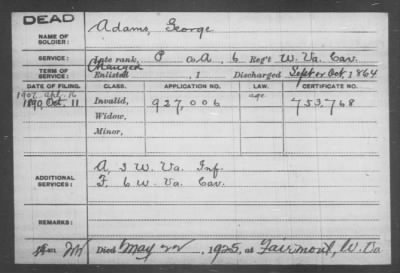 DEAD
NAME OF SOLDIER: Adams, George
SERVICE: Late rank, P Co. A, 6 Reg't W. Va. Cav.
Changed
TERM OF SERVICE: Enlisted , 1 Discharged Sept or Oct, 1864
DATE OF FILING. CLASS. APPLICATION NO. LAW. CERTIFICATE NO.
1907 Apl. 16 age
1890, Oct. 11 Invalid, 927,006 753,768
Widow,
Minor,
A, 3 W. Va. Inf.
ADDITIONAL SERVICES: F. 6 W. Va. Cav.
REMARKS:
Died May 22, 1925, at Fairmont, W. Va